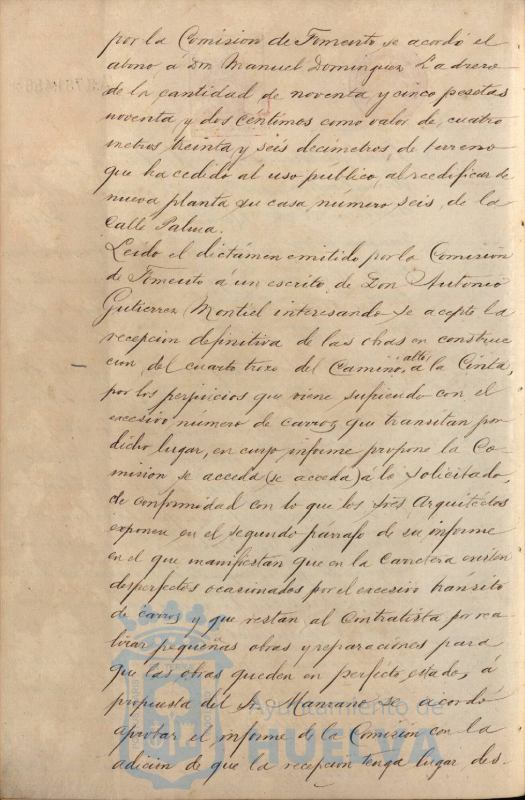 por la Comision de Fomento se acordó el
abono á Don Manuel Dominguez Ladrero
de la cantidad de noventa y cinco pesetas
noventa y dos céntimos como valor de cuatro
metros treinta y seis decímetros de terreno
que ha cedido al uso público, al reedificar de
nueva planta su casa número seis de la
Calle Palma.
Leido el dictámen emitido por la Comisión
de Fomento á un escrito de Don Antonio
Gutierrez Montiel interesando se acepte la
recepcion definitiva de las obras en construc
cion del cuarto trozo del Camino alto á la Cinta,
por los perjuicios que viene sufriendo con el
excesivo número de carros que transitan por
dicho lugar, en cuyo informe propone la Co-
mision se acceda (se acceda) á lo solicitado,
de conformidad con lo que los tres Arquitectos
exponen en el segundo párrafo de su informe
en el que manifiestan que en la Carretera existen
desperfectos ocasionados por el excesivo tránsito
de carros y que restan al Contratista por rea-
lizar pequeñas obras y reparaciones para
que las obras queden en perfecto estado, á
propuesta del Sr. Manzano se acordó
aprobar el informe de la Comisión con la
adicion de que la recepcion tenga lugar des-
Ayuntamiento de
HUELVA